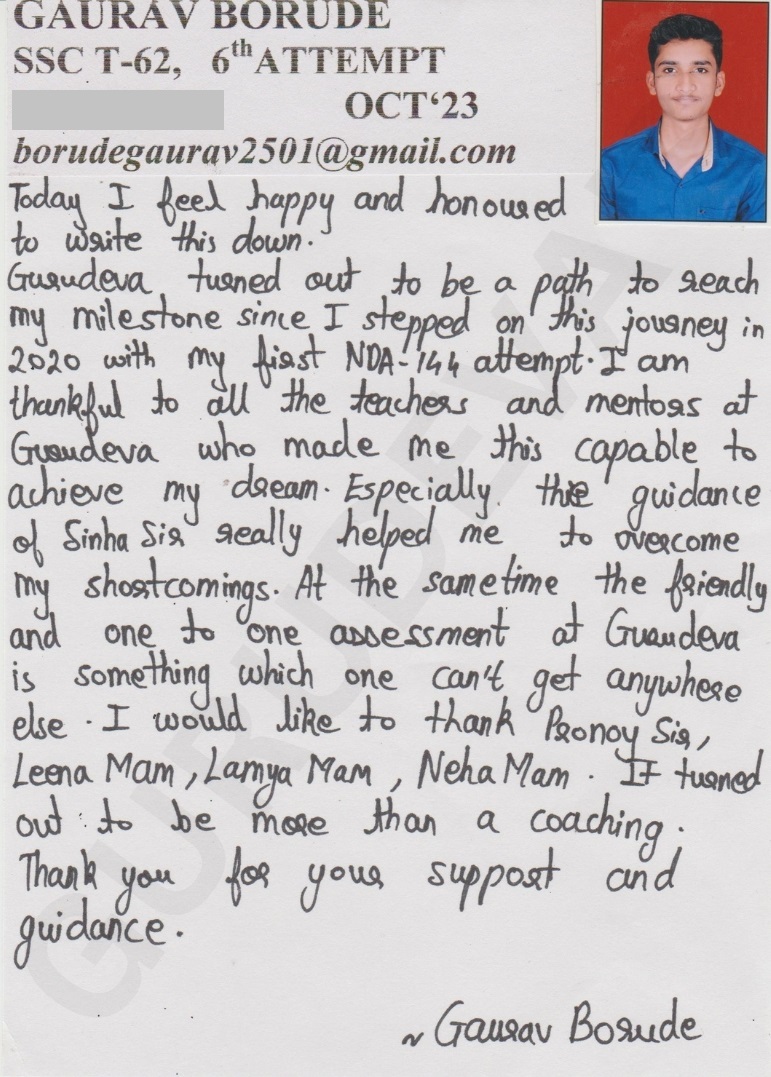 GAURAV BORUDE
SSC T-62, 6th ATTEMPT
OCT‘23
borudegaurav2501@gmail.com
Today I feel happy and honoured
to write this down.
Gurudeva turned out to be a path to reach
my milestone since I stepped on this journey in
2020 with my first NDA-144 attempt. I am
thankful to all the teachers and mentors at
Gurudeva who made me this capable to
achieve my dream. Especially the guidance
of Sinha Sir really helped me to overcome
my shortcomings. At the sametime the friendly
and one to one assessment at Gurudeva
is something which one can't get anywhere
else. I would like to thank Pronoy Sir,
Leena Mam, Lamya Mam, Neha Mam. It turned
out to be more than a coaching.
Thank you for your support and
guidance.
~ Gaurav Borude
GURUDEVA